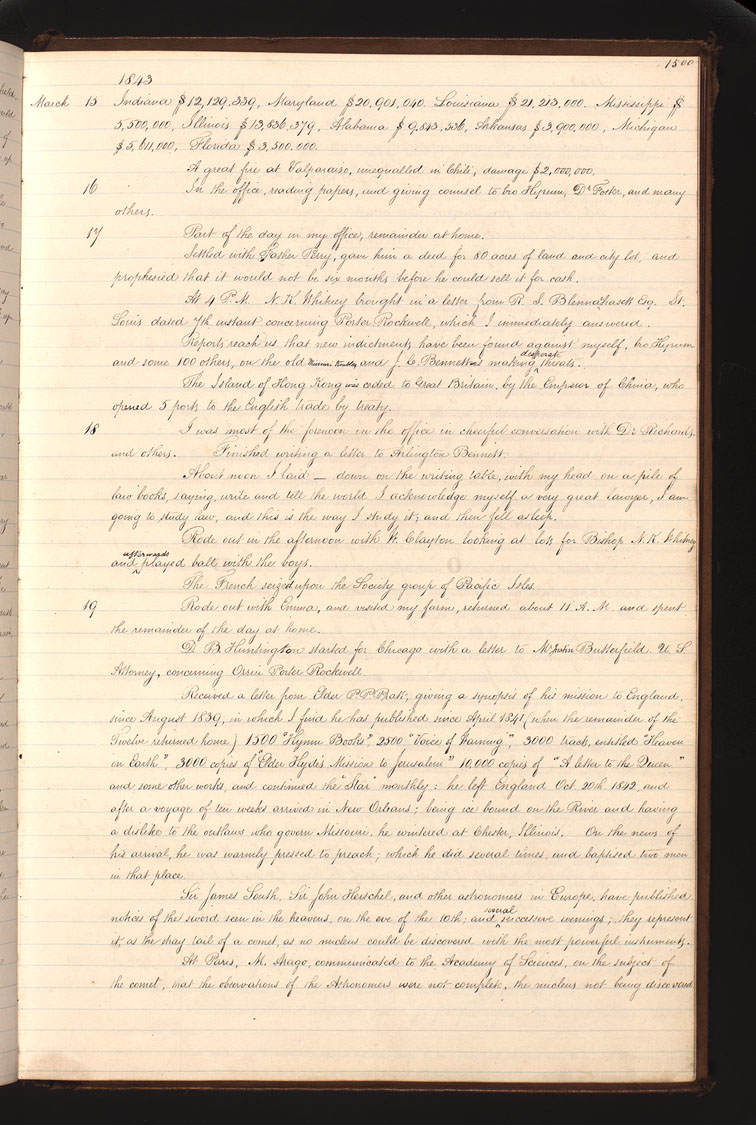 1500
1843
March 15 Indiana $12,129,339, Maryland $20,901,040. Louisiana $21,213,000. Mississippi $
5,500,000, Illinois $13,836,379, Alabama $9,843,536, Arkansas $3,900,000, Michigan
$5,611,000, Florida $3,500.000.
A great fire at Valparaiso, unequalled in Chili, damage $2,000,000.
16 In the office, reading papers, and giving counsel to bro Hyrum, Dr Foster, and many
others.
17 Part of the day in my office, remainder at home.
Settled with Father Perry, gave him a deed for 80 acres of land and city lot, and
prophesied that it would not be six months before he could sell it for cash.
At 4 P.M. N. K. Whitney brought in a letter from R. S. Blennahasett Esq. St.
Louis dated 7th instant concerning Porter Rockwell, which I immediately answered.
Reports reach us that new indictments have been found against myself, bro Hyrum
and some 100 others, on the old Missouri troubles, and J. C. Bennett was making desperate threats.
The Island of Hong Kong was ceded to Great Britain, by the Emperor of China, who
opened 5 ports to the English trade by treaty.
18 I was most of the forenoon in the office in cheerful conversation with Dr Richards,
and others. Finished writing a letter to Arlington Bennett.
About noon I laid — down on the writing table, with my head on a pile of
law books, saying, write and tell the world I acknowledge myself a very great lawyer, I am
going to study law, and this is the way I study it; and then fell asleep.
Rode out in the afternoon with W. Clayton looking at lots for Bishop N. K. Whitney
and afterwards played ball with the boys.
The French seized upon the Society group of Pacific Isles.
19 Rode out with Emma, and visited my farm, returned about 11 A. M. and spent
the remainder of the day at home.
D. B. Huntington started for Chicago with a letter to Mr Justin Butterfield. U. S
Attorney, concerning Orrin Porter Rockwell.
Received a letter from Elder P P Pratt, giving a synopsis of his mission to England,
since August 1839, in which I find he has published since April 1841 (when the remainder of the
Twelve returned home) 1500 "Hymn Books", 2500 "Voice of Warning", 3000 tracts, entitled "Heaven
on Earth", 3000 copies of "Elder Hyde's Mission to Jerusalem" 10,000 copies of "A letter to the Queen"
and some other works, and continued the "Star" monthly: he left England Oct. 20th 1842, and
after a voyage of ten weeks arrived in New Orleans; being ice bound on the River and having
a dislike to the outlaws who govern Missouri, he wintered at Chester, Illinois. On the news of
his arrival, he was warmly pressed to preach; which he did several times, and baptised two men
in that place.
Sir James South, Sir John Herschel, and other astronomers in Europe, have published
notices of the sword seen in the heavens, on the eve of the 10th; and several successive evenings; they represent
it, as the stray tail of a comet, as no nucleus could be discovered with the most powerful instruments.
At Paris, M. Arago, communicated to the Academy of Sciences, on the subject of
the comet, that the observations of the Astronomers were not complete, the nucleus not being discovered